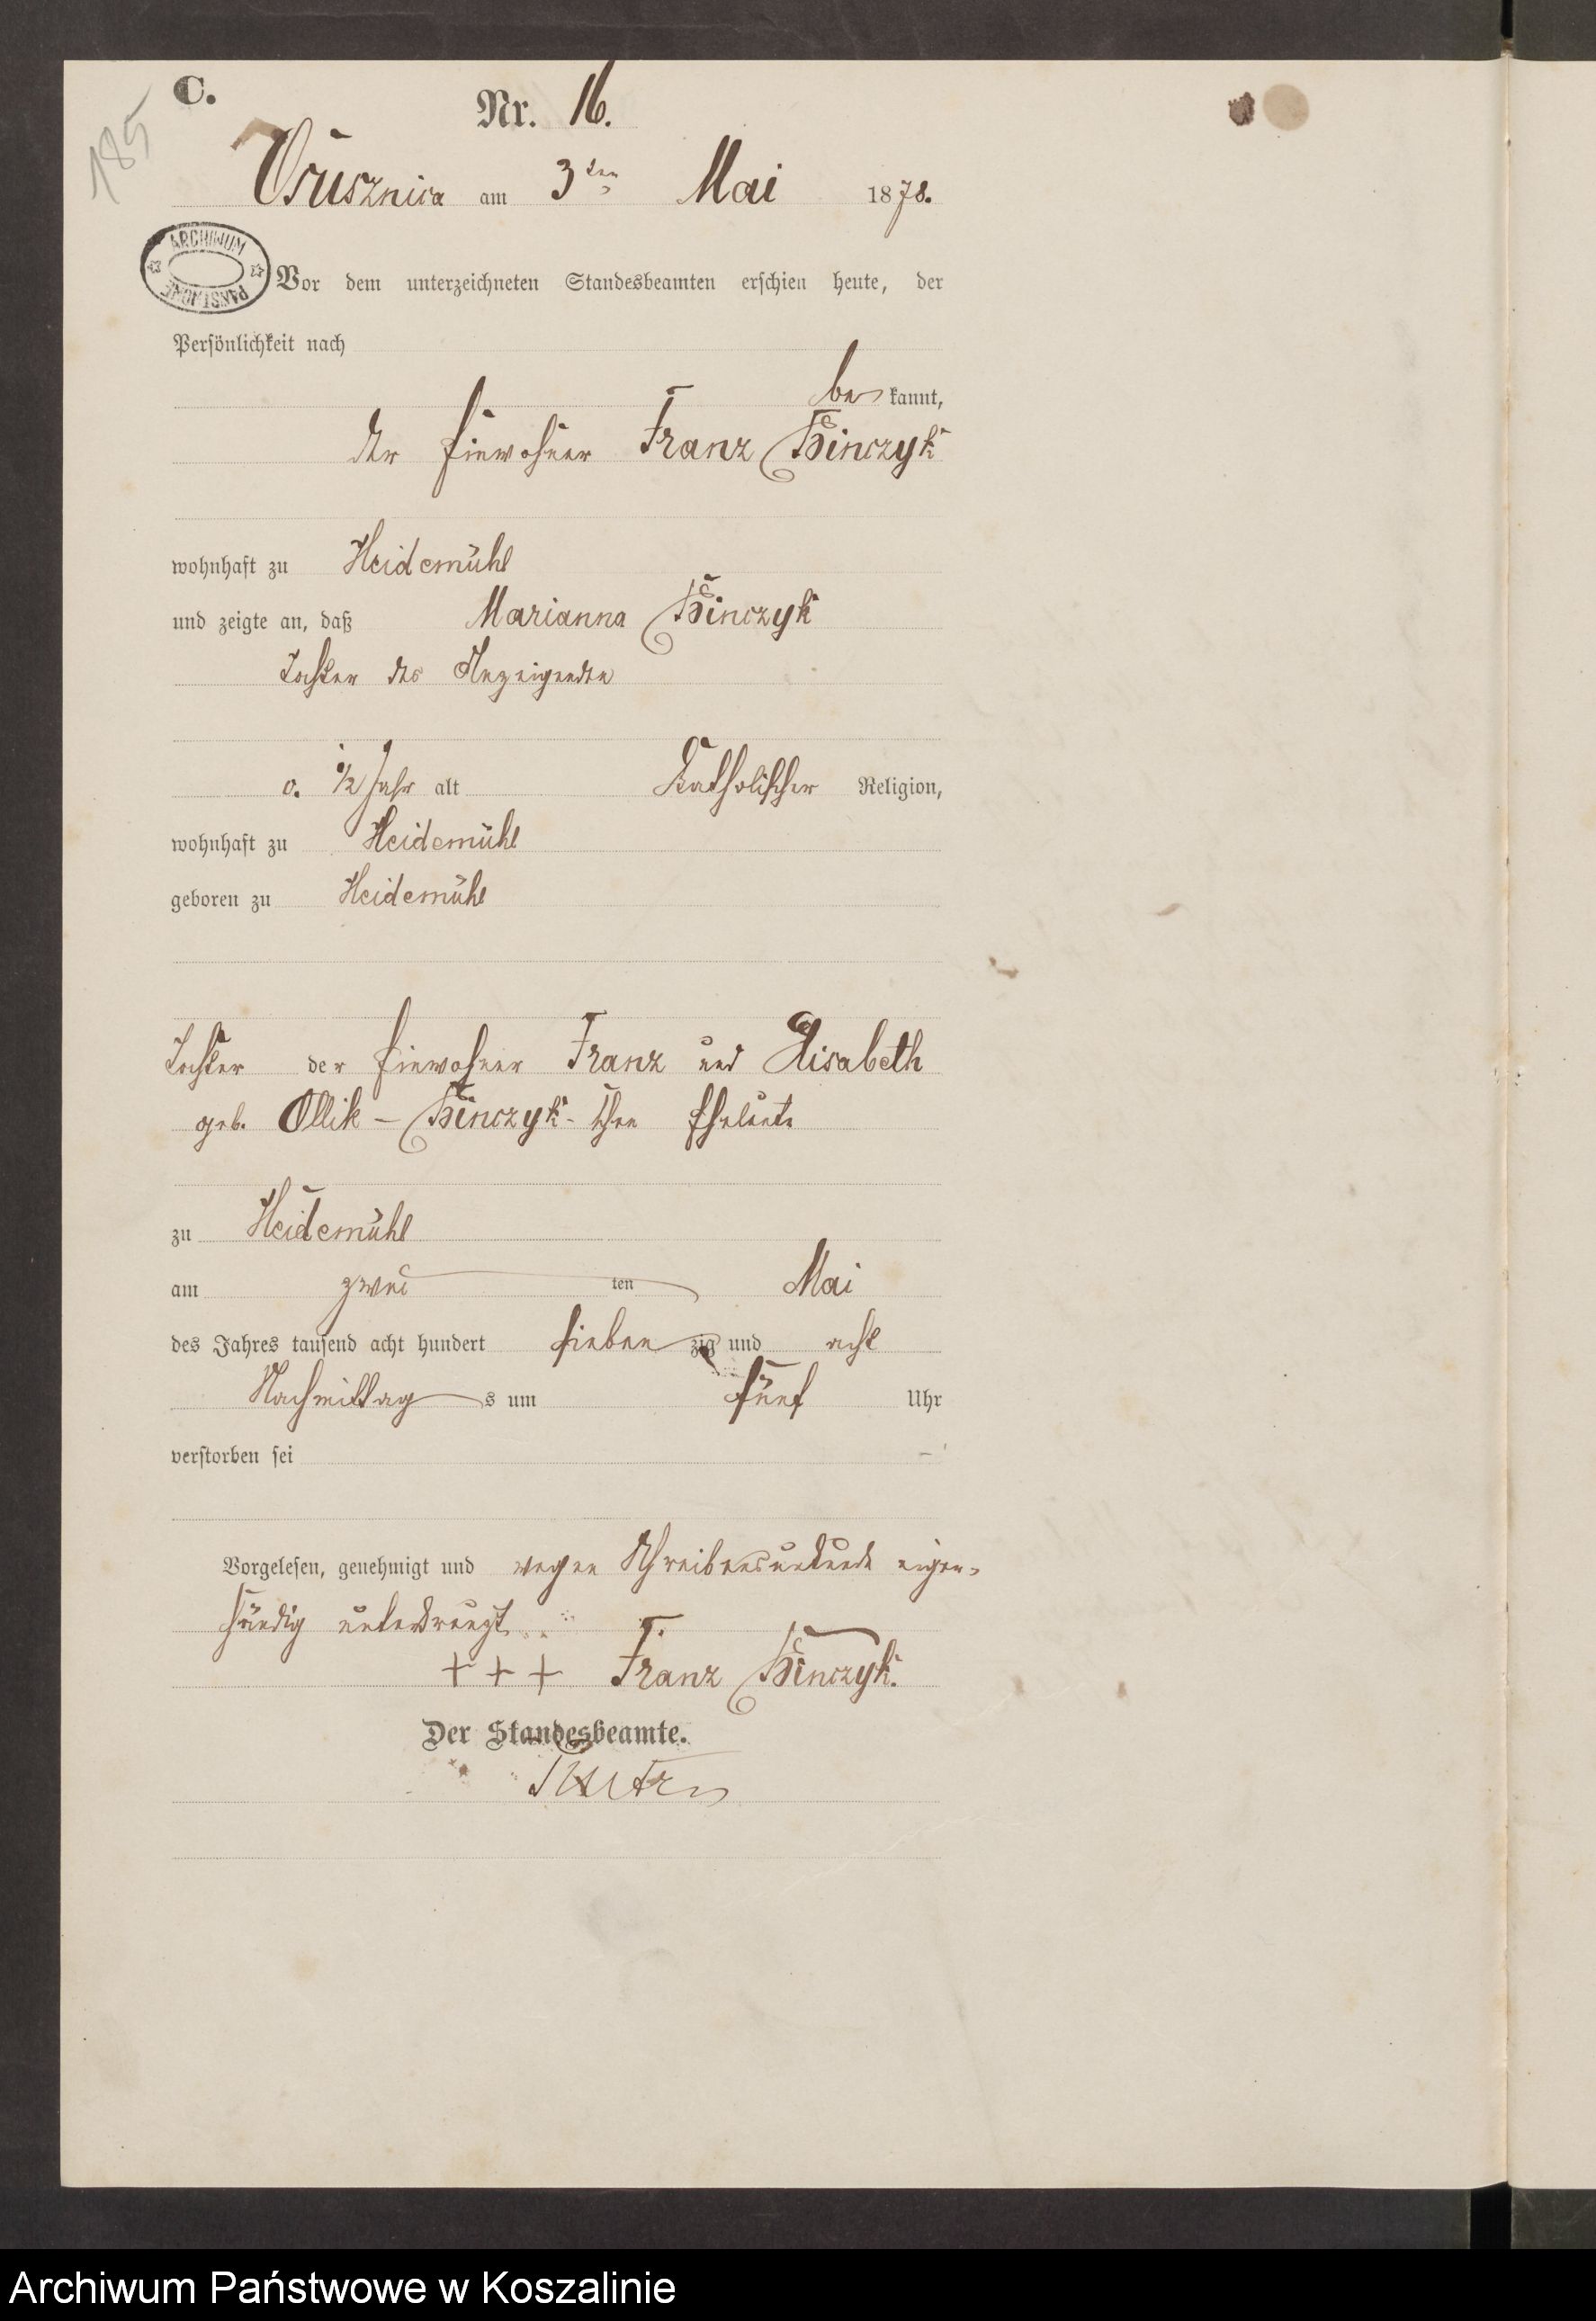 185
C.
Nr. 16.
am 3ten Mai 1878.
ARCHIWUM PAŃSTWOWE
Vor dem unterzeichneten Standesbeamten erschien heute, der
Persönlichkeit nach
be kannt,
der Einwohner Franz
wohnhaft zu Heidemühl
und zeigte an, daß Marianna
Tochter des Anzeigenden
o. 1/2 Jahr alt Katholischer Religion,
wohnhaft zu Heidemühl
geboren zu Heidemühl
Tochter der Einwohner Franz und Elisabeth
geb. Ollik – schen Eheleute
zu Heidemühl
am zwei ten Mai
des Jahres tausend acht hundert sieben zig und acht
Nachmittag s um fünf Uhr
verstorben sei
Vorgelesen, genehmigt und wegen Schreibensunkunde eigen-
händig unterkreuzt
+ + + Franz
Der Standesbeamte.
Archiwum Państwowe w Koszalinie